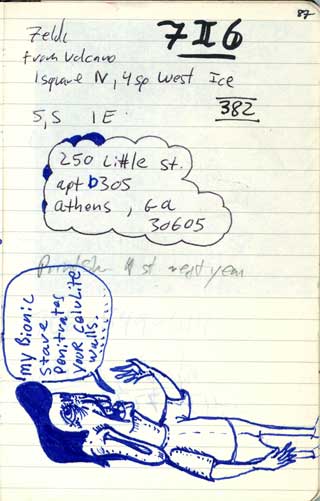 87
Zelda
from volcano
1 square N, 4 sp West Ice
5, S 1 E
7II6
382
250 Little st.
apt b305
athens, Ga
30605
1st next year
my Bionic
stare
penitrates
your calulite
walls.